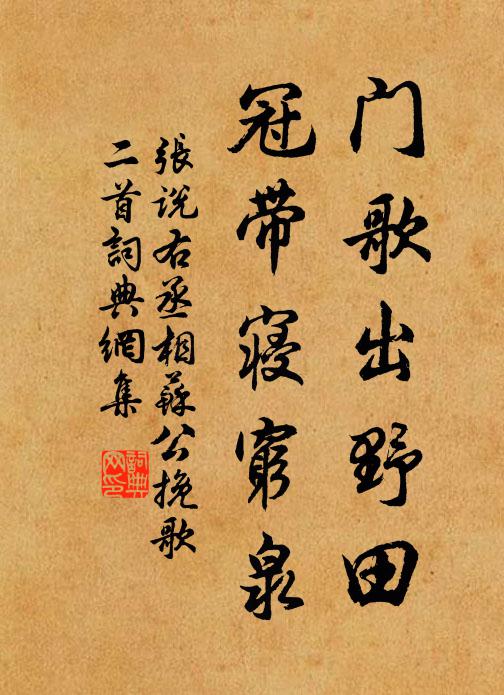 门歌出野田
冠带寝穷泉
張說右丞相蘇公挽歌
二首詞典網集
詞典
网印